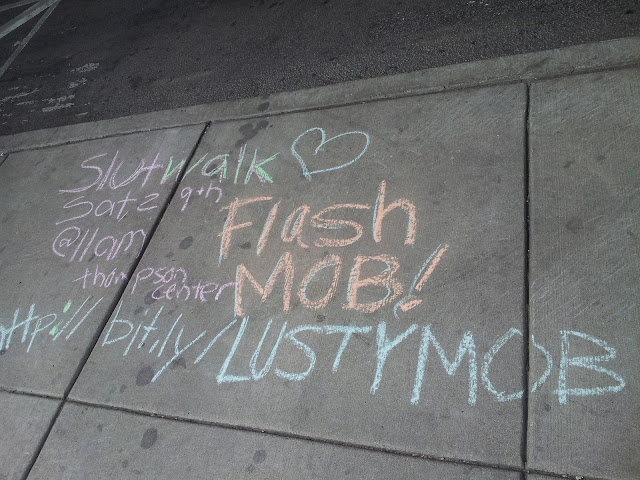 Slutwalk
Sat 29th
@11am
thompson
center
Flash
MOB!
http://bit.ly/LUSTYMOB